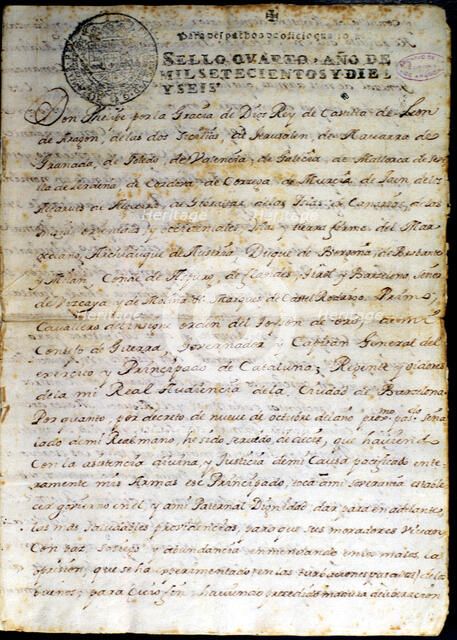 Para despachos de oficio quatro mrs.
SELLO QVARTO, AÑO DE
MIL SETECIENTOS Y DIEZ
Y SEIS.
Don Phelipe por la Gracia de Dios Rey de Castilla de Leon
de Aragon, de las dos Sicilias, de Jerusalen, de Navarra de
Granada, de Toledo, de Valencia, de Galicia, de Mallorca de Sevi
lla de Cerdeña de Cordova de Corcega, de Murcia, de Jaen de los
Algarves de Algecira de Gibraltar, de las Islas de Canaria, de las
Indias orientales y occidentales, Islas y tierra firme del Mar
occeano, Archiduque de Austria, Duque de Borgoña, de Brabante
y Milan Conde de Aspurg, de Flandes, Tirol y Barcelona Señor
de Vizcaya y de Molina &a. Marques de Castel Rodrigo, Primo,
Cavallero del insigne orden del Toyson de oro, de mi
Consejo de Guerra, Governador y Capitan General del
exercito y Principado de Cataluña; Regente y oidores
de la mi Real Audiencia de la Ciudad de Barcelona
Por quanto, por decreto de nueve de octubre del año proxmo. pasdo. seña
lado de mi Real mano, he sido servido de decir, que haviendo
con la asistencia divina, y Justicia de mi Causa pacificado ente
ramente mis Armas ese Principado, toca a mi soverania estable
cer govierno en el y a mi Paternal Dignidad dar para en adelante
las mas saludables providencias, para que sus moradores vivan
con paz, sosiego y abundancia enmendando en los malos la
opresion, que se ha experimentado en las turbaciones pasadas a los
buenos; para cuio fin haviendo precedido madura deliberacion
Heritage
Heritage
Heritage
Heritage